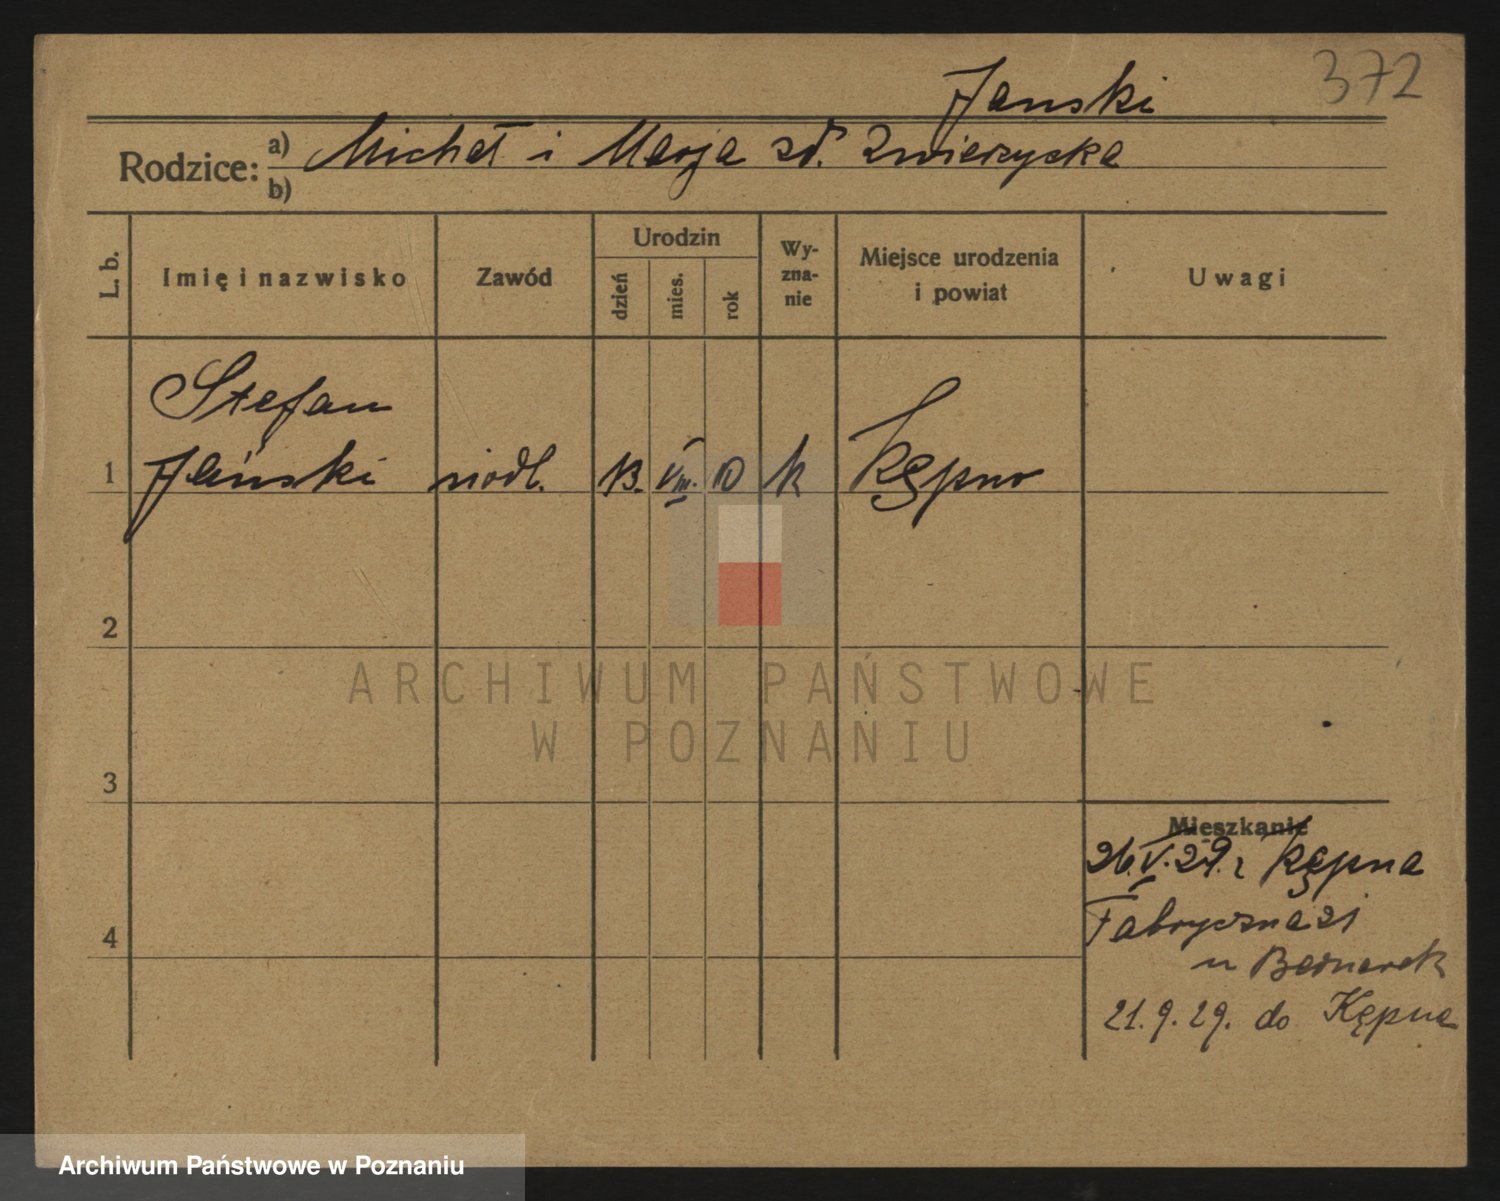 372
Janski
Rodzice: a) Michał i Marja zd. Zwierzycka
b)
L. b. Imię i nazwisko Zawód Urodzin dzień mies. rok Wy-zna-nie Miejsce urodzenia i powiat Uwagi
Stefan
1 Jański siodl. 13. VIII. 10 k Kępno
2
ARCHIWUM PAŃSTWOWE
W POZNANIU
3
Mieszkanie
26.V.29. z Kępna
4 Fabryczna 21
u Bednarek
21.9.29. do Kępna
Archiwum Państwowe w Poznaniu